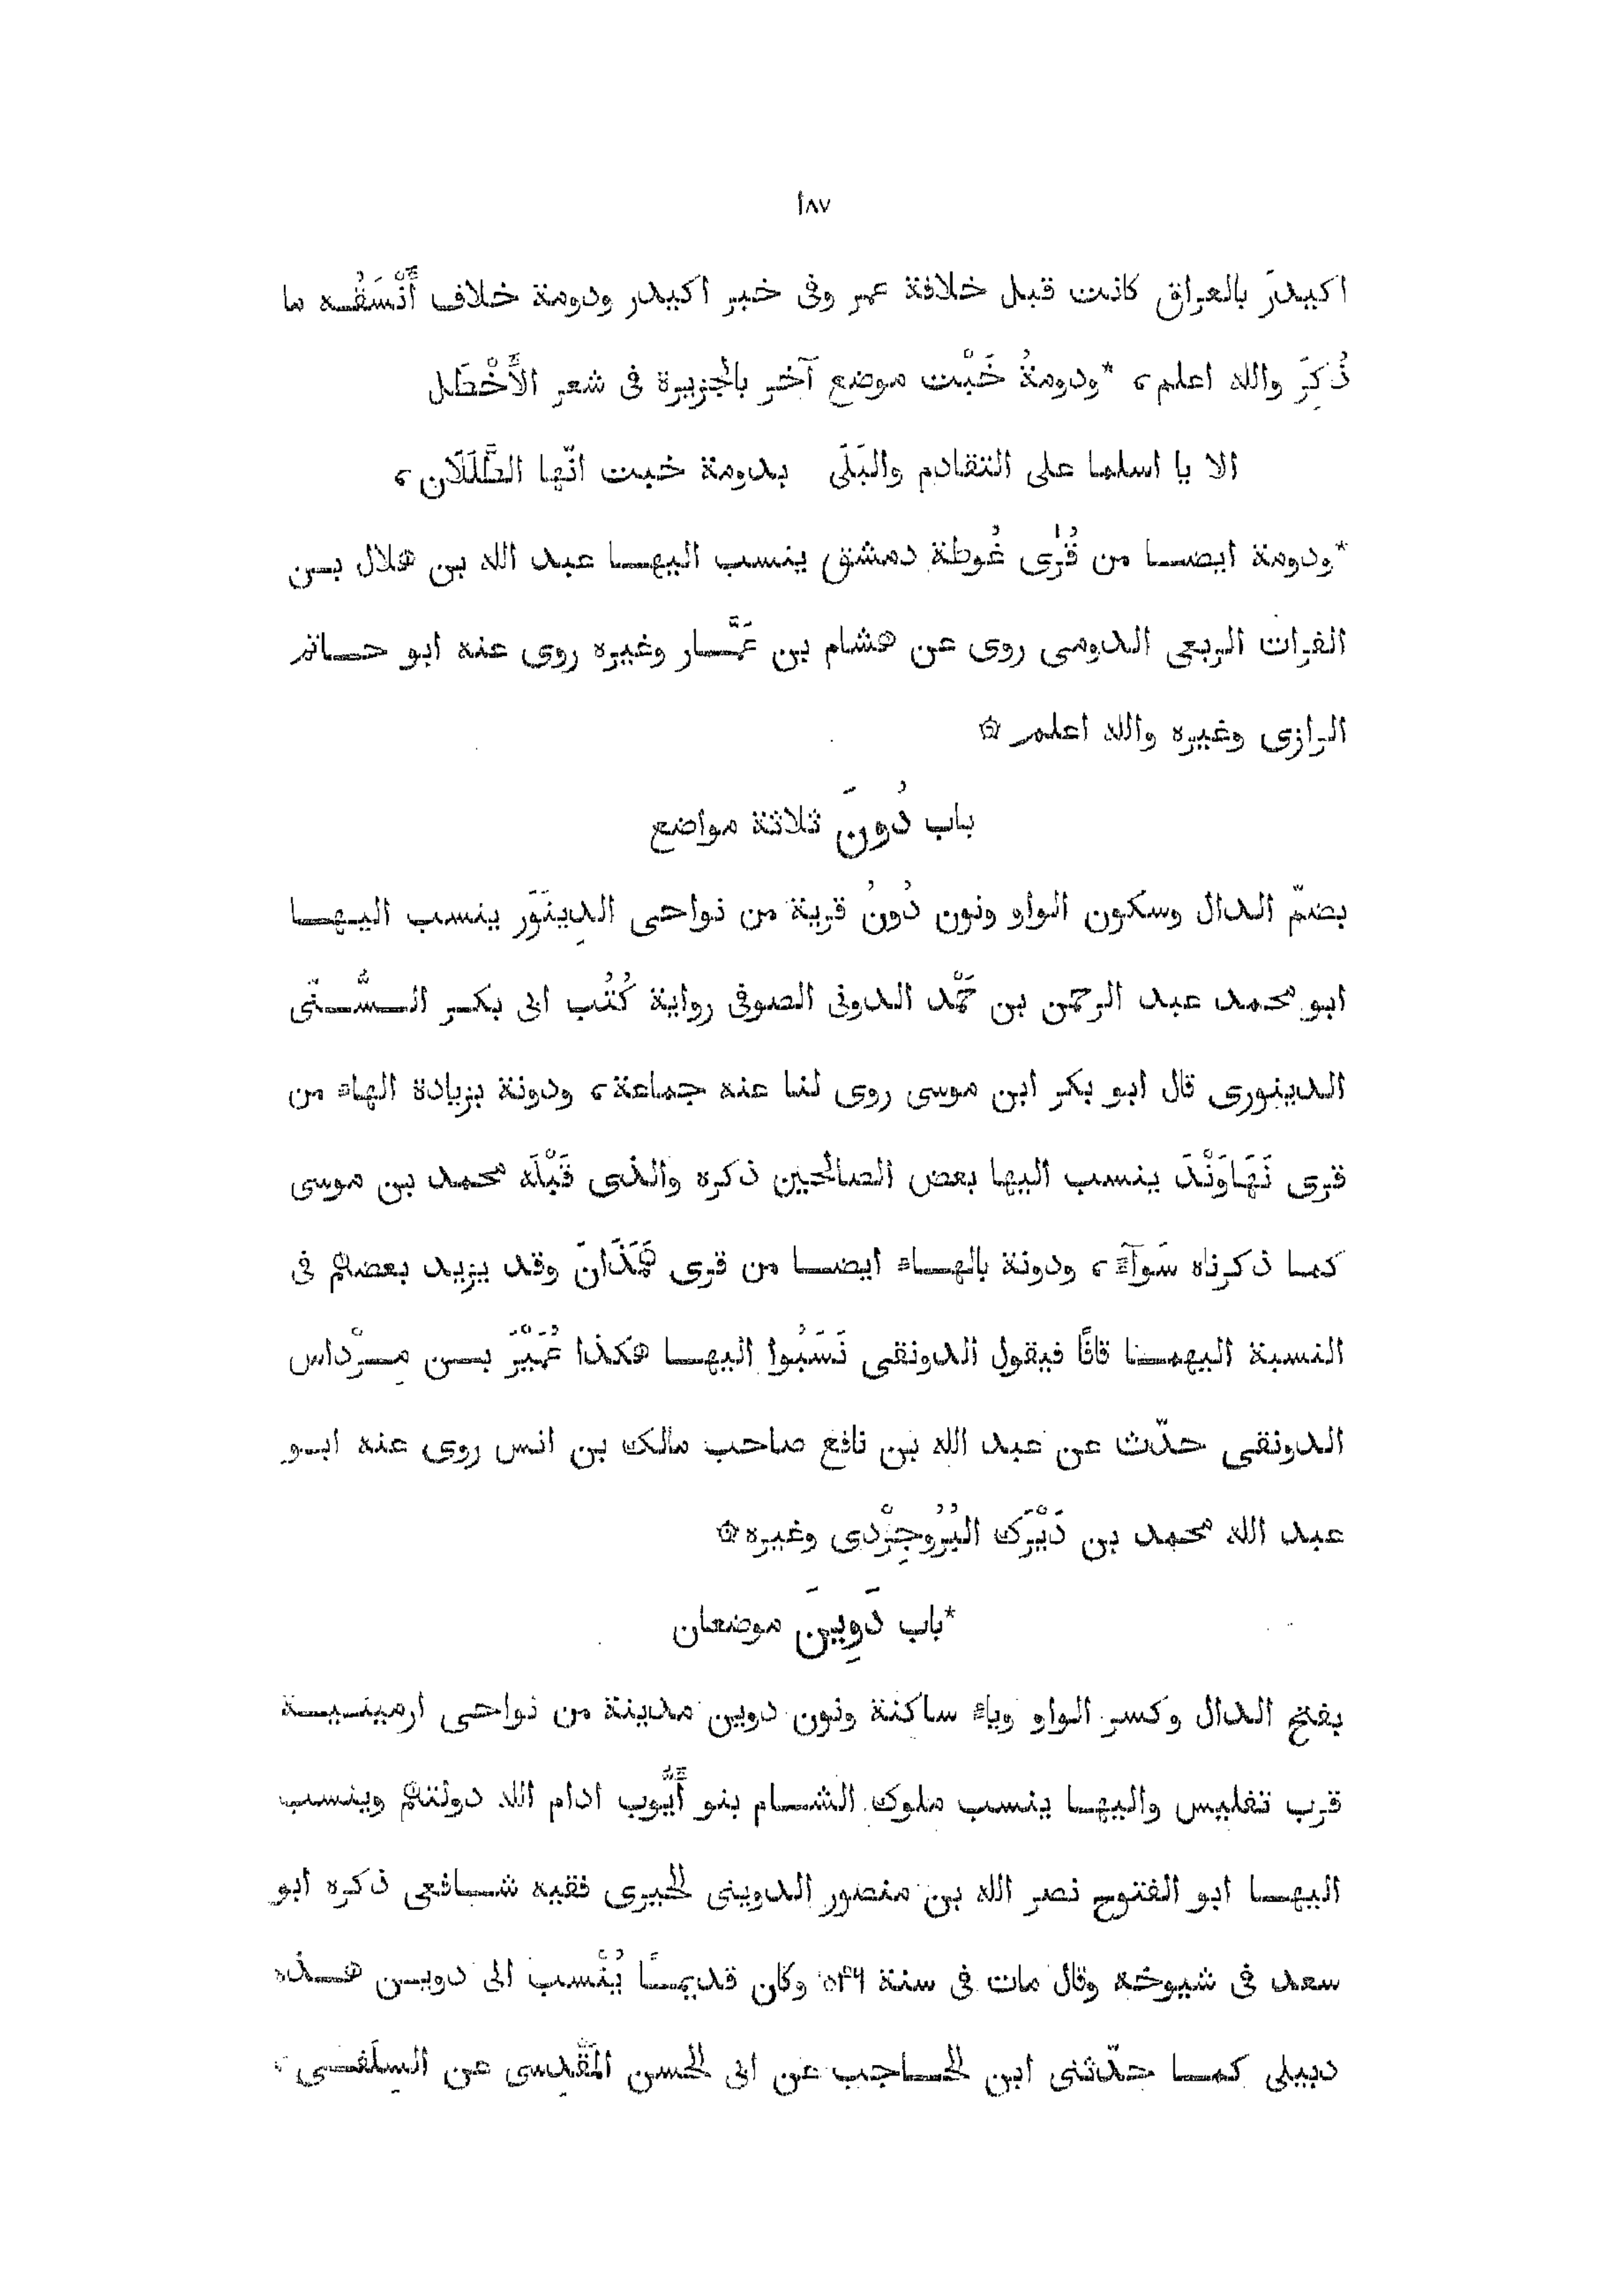 ١٨٧
اكيدرَ بالعراق كانت قبل خلافة عمر وفى خبر اكيدر ودومة خلاف أَنْسَقُه ما
ذُكِرَ والله اعلم، *ودومةُ خَبْت موضع آخر بالجزيرة فى شعر الأَخْطَل
الا يا اسلما على التقادم والبَلَى بدومة خبت انّها الطَّلَلَان،
*ودومة ايضا من قُرَى غُوطة دمشق ينسب اليها عبد الله بن هلال بن
الفرات الربعى الدومى روى عن هشام بن عَمَّار وغيره روى عنه ابو حاتم
الرازى وغيره والله اعلم ۞
باب دُونَ ثلاثة مواضع
بضمّ الدال وسكون الواو ونون دُونُ قرية من نواحى الدِينَوَر ينسب اليها
ابو محمد عبد الرحمن بن حَمْد الدونى الصوفى رواية كُتُب ابى بكر السُّنّى
الدينورى قال ابو بكر ابن موسى روى لنا عنه جماعة، ودونة بزيادة الهاء من
قرى نَهَاوَنْدَ ينسب اليها بعض الصالحين ذكره والذى قَبْلَه محمد بن موسى
كما ذكرناه سَوآءً، ودونة بالهاء ايضا من قرى هَمَذَانَ وقد يزيد بعضهم فى
النسبة اليهما قافًا فيقول الدونقى نَسَبُوا اليها هكذا عُمَيْرَ بن مِرْداس
الدونقى حدّث عن عبد الله بن نافع صاحب مالك بن انس روى عنه ابو
عبد الله محمد بن دَيْزَك البُرُوجِرْدى وغيره ۞
*باب دَوِينَ موضعان
بفتح الدال وكسر الواو وياء ساكنة ونون دوين مدينة من نواحى ارمينية
قرب تفليس واليها ينسب ملوك الشام بنو أَيُّوب ادام الله دولتهم وينسب
اليها ابو الفتوح نصر الله بن منصور الدوينى الحيرى فقيه شافعى ذكره ابو
سعد فى شيوخه وقال مات فى سنة ٥٤٦ وكان قديمًا يُنْسب الى دوين هذه
دبيلى كما حدّثنى ابن الحاجب عن ابى الحسن المَقْدِسى عن السِلَفى،